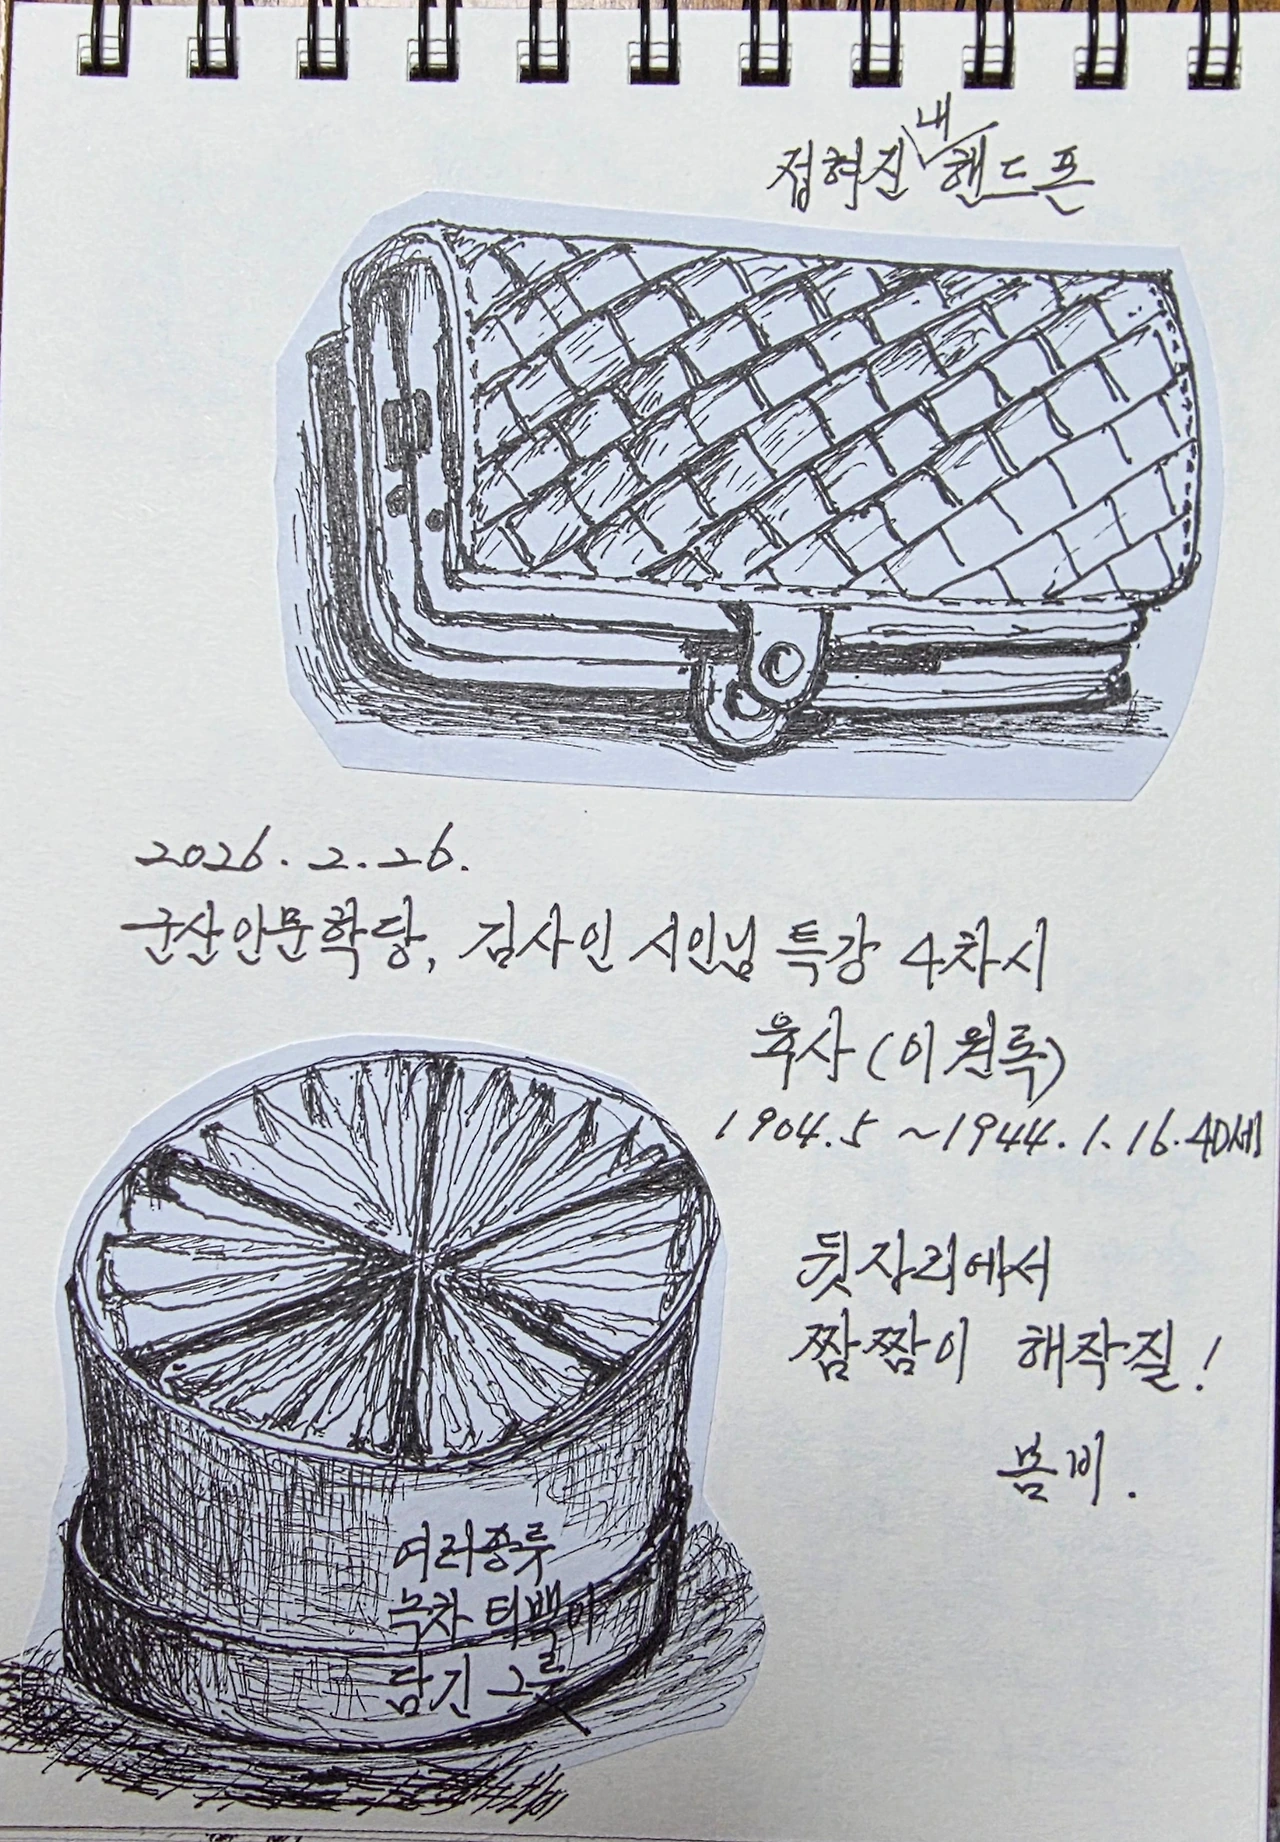 접혀진 내 핸드폰
2026. 2. 26.
군산인문학당, 김사인 시인님 특강 4차시
육사 (이원록)
1904. 5 ~ 1944. 1. 16. 40세
뒷자리에서
짬짬이 해작질!
봄비.
여러종류
녹차 티백이
담긴 그릇